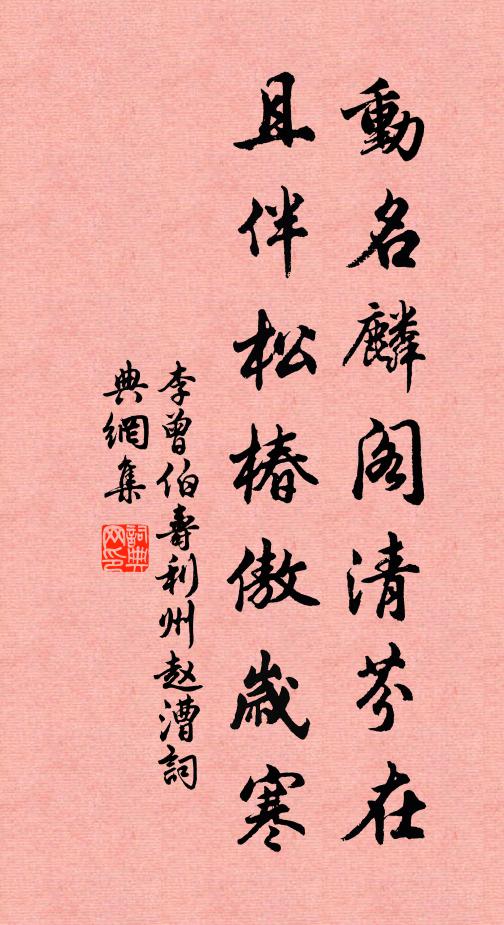 動名麟阁清芬在
且伴松椿傲歲寒
李曾伯壽利州赵漕詞
典網集
詞典
网印